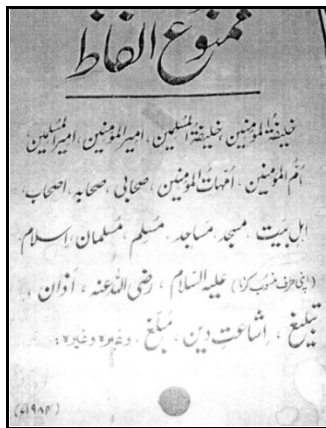 ممنوع الفاظ
خلیفۃ المؤمنین، خلیفۃ المسلمین، امیر المؤمنین، امیر المسلمین
اُم المؤمنین، اُمہات المؤمنین، صحابی، صحابہ، اصحاب،
اہل بیت، مسجد، مساجد، مسلم، مسلمان، اسلام
(اپنی طرف منسوب کرنا) علیہ السلام، رضی اللہ عنہ، اذان،
تبلیغ، اشاعتِ دین، مبلّغ، وغیرہ وغیرہ۔
(۱۹۸۴ء)